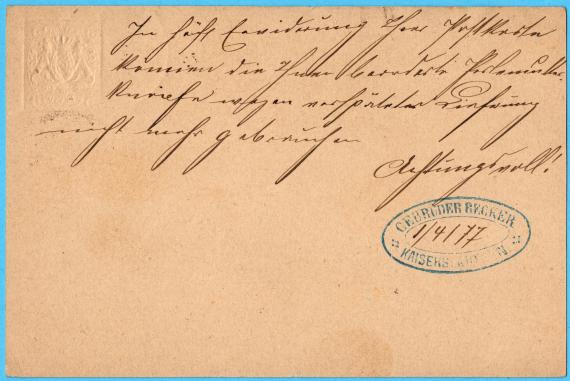 In höfl. Erwiderung Ihrer Postkarte
können die Ihnen beorderte Perlmutter-
Knöpfe wegen verspäteter Lieferung
nicht mehr gebrauchen
Achtungsvoll!
GEBRÜDER BECKER
1/4/77